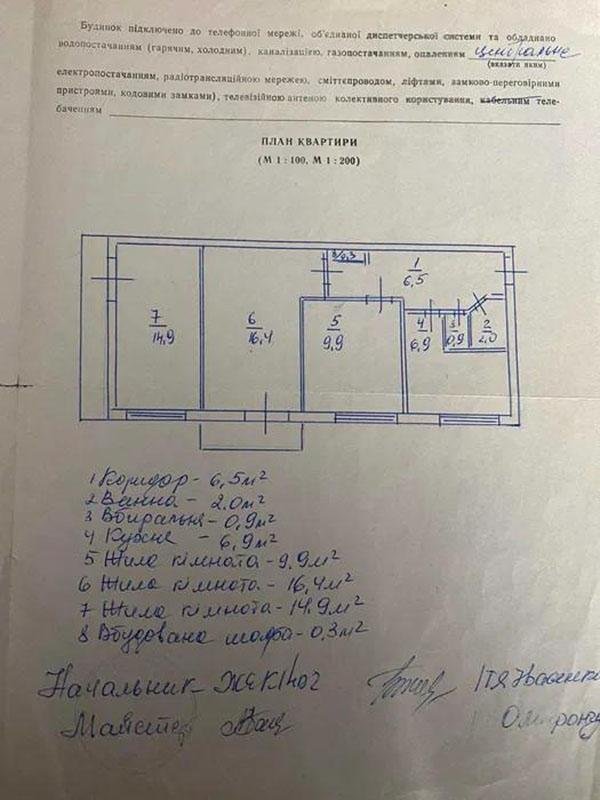 Будинок підключено до телефонної мережі, об'єднаної диспетчерської системи та обладнано
водопостачанням (гарячим, холодним), каналізацією, газопостачанням, опаленням центральне
(вказати яким)
електропостачанням, радіотрансляційною мережею, сміттєпроводом, ліфтами, замково-переговірними
пристроями, кодовими замками), телевізійною антеною колективного користування, кабельним теле-
баченням
ПЛАН КВАРТИРИ
(М 1 : 100, М 1 : 200)
8/0,3
1
6,5
7
14,9
6
16,4
5
9,9
4
6,9
3
0,9
2
2,0
1 Коридор - 6,5м²
2 Ванна - 2.0м²
3 Вбиральня - 0,9м²
4 Кухне - 6,9м²
5 Жила кімната - 9.9м²
6 Жила кімнота - 16,4м²
7 Жила кімнота - 14.9м²
8 Вбудована шафа - 0,3м²
Начальник
Майстер